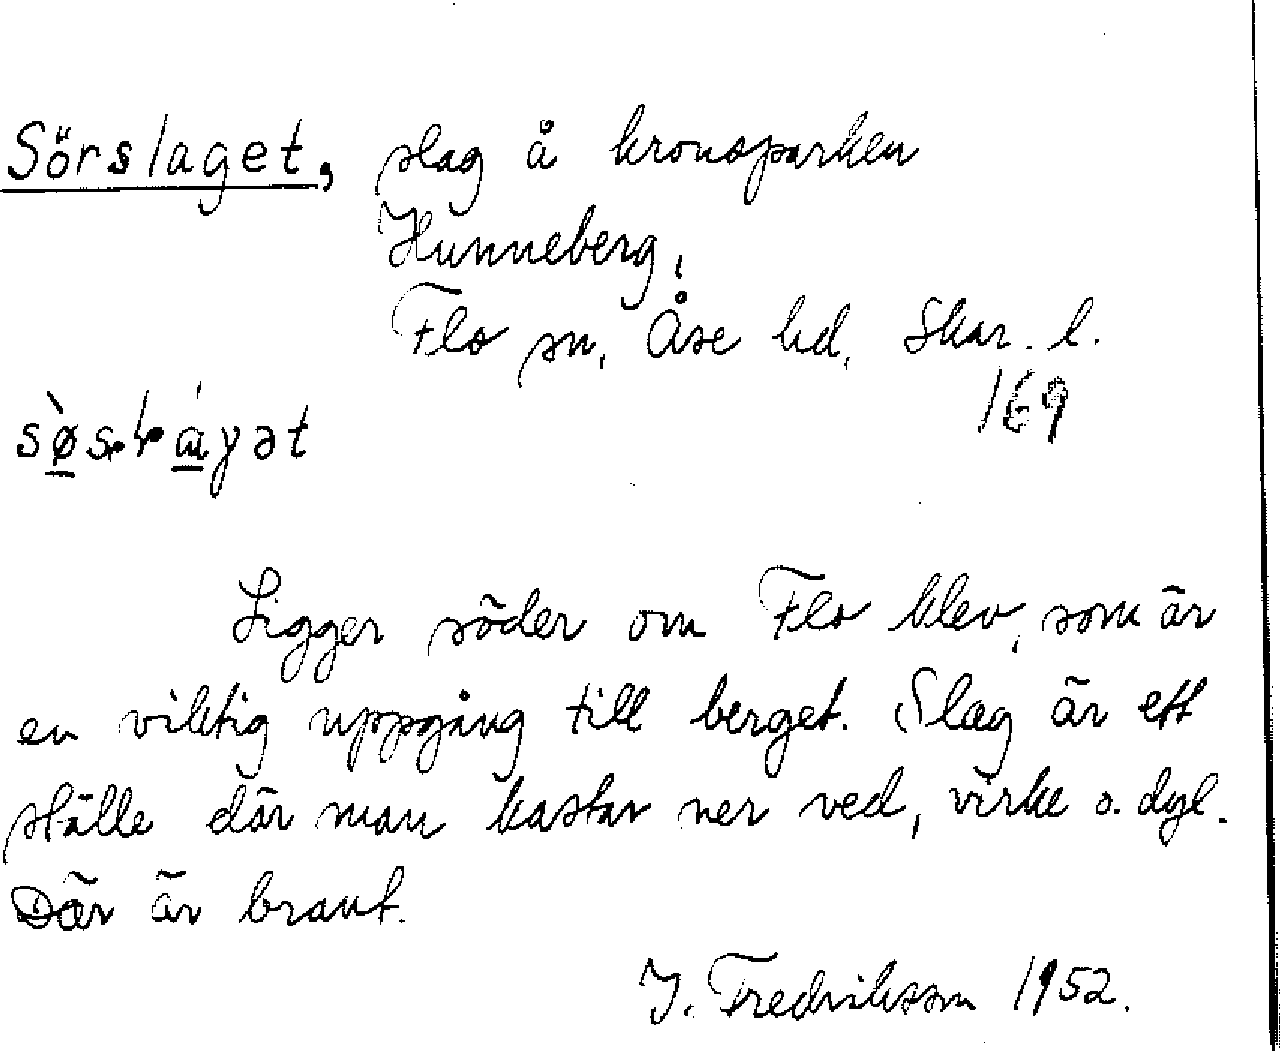 Sörslaget, slag å kronoparken
Hunneberg,
Flo sn, Åse hd, Skar. l.
169
Ligger söder om Flo klev, som är
en viktig uppgång till berget. Slag är ett
ställe där man kastar ner ved, virke o. dyl.
Där är brant.
J. Fredriksson 1952.